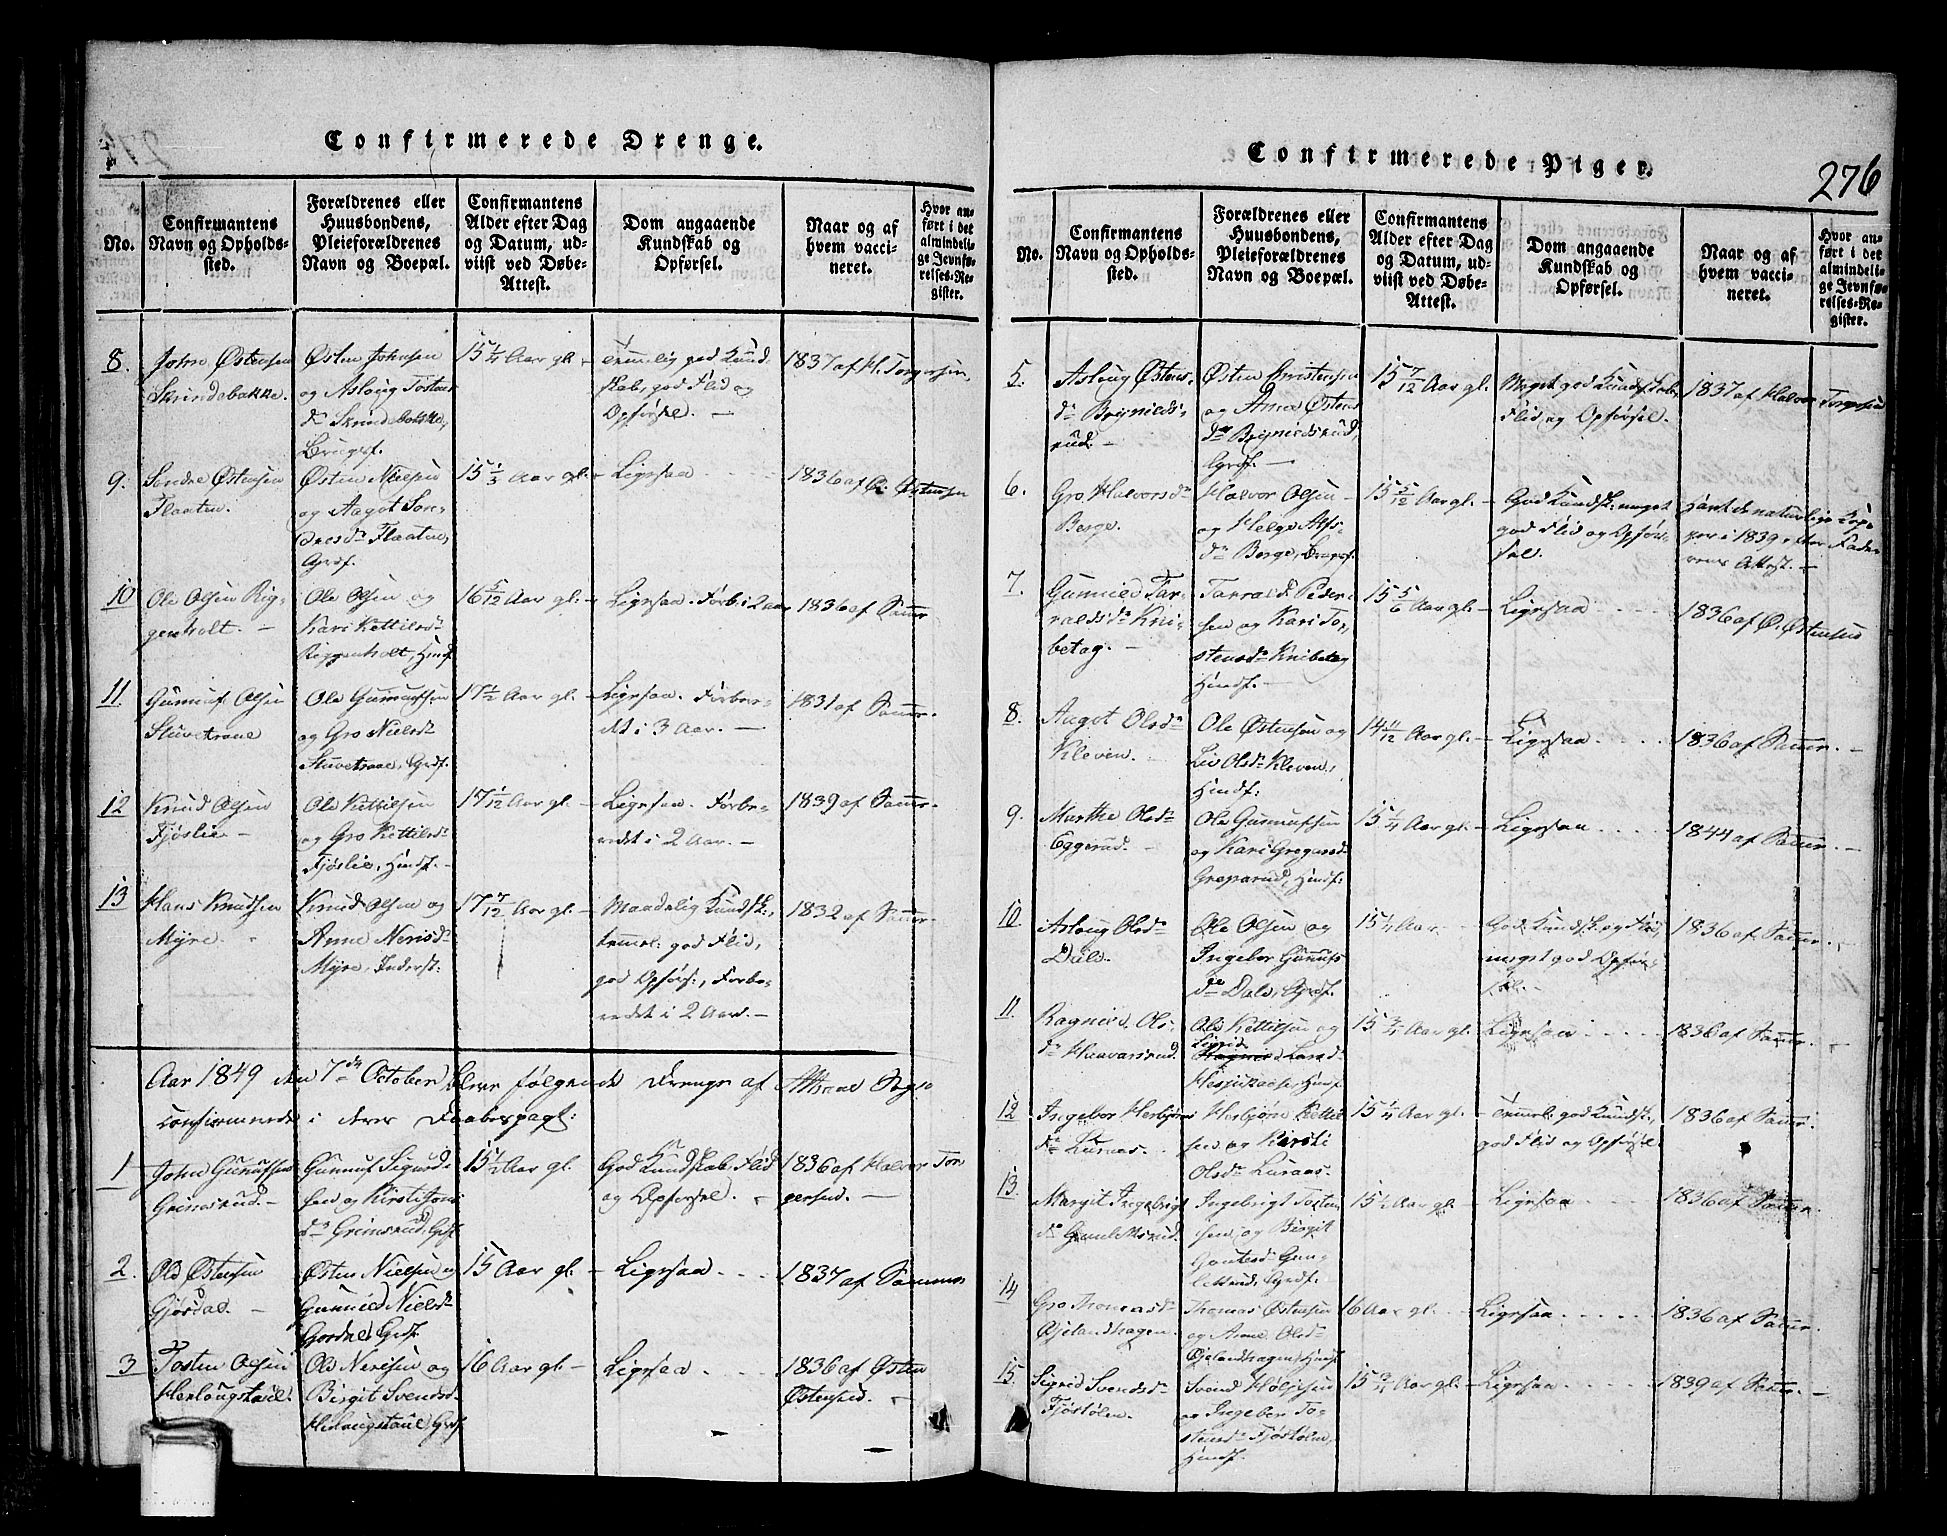 Confirmerede Drenge.
No.
Confirmantens
Navn og Opholds-
sted.
Forældrenes eller
Huusbondens,
Pleieforældrenes
Navn og Boepæl.
Confirmantens
Alder efter Dag
og Datum, ud-
viist ved Døbe-
Attest.
Dom angaaende
Kundskab og
Opførsel.
Naar og af
hvem vacci-
neret.
Hvor an-
ført i det
almindeli-
ge Jevnfø-
relses-Re-
gister.
8.
John Østensen
Skrindebakke.
Østen Johnsen
og Asloug Tostens
dr Skrindebakke,
Brugsf.
15 1/4 Aar gl.
Temmelig god Kund-
skab, god Flid og
Opførsel. —
1837 af H. Torgersen.
9.
Sondre Østensen
Flaaten.
Østen Nielsen
og Aagot Son-
dresdr Flaaten,
Grdf.
15 1/3 Aar gl.
Ligesaa
1836 af Ø. Østensen
10
Ole Olsen Rig-
genholt. —
Ole Olsen og
Kari Kettilsdr
Riggenholt, Hmdf.
16 5/12 Aar gl. —
Ligesaa. Forb. i 2 Aar
1836 af Samme
11.
Gunnuf Olsen
Stuvetraae
Ole Gunnufsen
og Gro Nielsdr
Stuvetraae, Grdf.
17 1/2 Aar gl. —
Ligesaa. Forbe-
redt i 3 Aar. —
1831 af Samme.
12
Knud Olsen
Fjøslie —
Ole Kettilsen
og Gro Kettilsdr
Fjøslie, Hmdf. —
17 1/12 Aar gl. —
Ligesaa. Forbe-
redt i 2 Aar. —
1839 af Samme.
13
Hans Knudsen
Myre.
Knud Olsen og
Anne Nerisdr
Myre, Inderst:
17 7/12 Aar gl. —
Maadelig Kundsk.,
temmel: god Flid,
god Opførs:, Forbe-
redt i 2 Aar. —
1832 af Samme.
Aar 1849 den 7de October bleve følgende Drenge af Attraae Sogn
confirmerede i deres Daabespagt:
1
John Gunufsen
Grimsrud. —
Gunnuf Sigurd-
sen og Kirsti Jons
dr Grimsrud, Grdf.
15 1/2 Aar gl.
God Kundskab, Flid
og Opførsel.
1836 af Halvor Tor-
gersen. —
2.
Ole Østensen
Gjørdal. —
Østen Nielsen og
Gunnild Nielsdr
Grdf.
15 Aar gl. —
Ligesaa
1837 af Samme
3
Tosten Olsen
Herlougstaul.
Ole Nerisen og
Birgit Svendsdr
Herlougstaul, Grdf.
16 Aar gl. —
Ligesaa
1836 af Østen
Østensen.
Confirmerede Piger.
276
No.
Confirmantens
Navn og Opholds-
sted.
Forældrenes eller
Huusbondens,
Pleieforældrenes
Navn og Boepæl.
Confirmantens
Alder efter Dag
og Datum, ud-
viist ved Døbe-
Attest.
Dom angaaende
Kundskab og
Opførsel.
Naar og af
hvem vacci-
neret.
Hvor an-
ført i det
almindeli-
ge Jevnfø-
relses-Re-
gister.
5.
Asloug Østens-
dr Brynilds-
rud. —
Østen Christensen
og Anne Østens
dr Brynildsrud,
Grdf. —
15 7/12 Aar gl.
Meget god Kundskab,
Flid og Opførsel.
1837 af Halvor Torgersen
6.
Gro Halvorsdr
Berge.
Halvor Olsen
og Helge Alfs-
dr Berge, Brugsf.
15 5/12 Aar gl. —
God Kundsk: meget
god Flid og Opfør-
sel.
Havt de naturlige Kop-
per i 1839 efter Fade-
rens Attest. —
7.
Gunnild Tar-
raldsdr Kni-
betag. —
Tarrald Peder-
sen og Kari To-
stensdr Knibetag
Hmdf. —
15 5/6 Aar gl. —
Ligesaa
1836 af Ø. Østensen
8.
Aagot Olsdr
Kleven.
Ole Østensen og
Liv Olsdr Kleven,
Hmdf:
14 11/12 Aar gl. —
Ligesaa
1836 af Samme. —
9.
Marthe Olsdr
Eggerud. —
Ole Gunnufsen
og Kari Gregarsdr
Hmdf:
15 1/4 Aar gl. —
Ligesaa
1844 af Samme. —
10
Aslaug Olsdr
Dale.
Ole Olsen og
Ingebor Gunnufs
dr Dale, Grdf.
15 1/4 Aar.
God Kundsk. og Flid,
meget god Opfør-
sel. —
1836 af Samme.
11.
Ragnild Ols-
dr Haavarsrud.
Ole Kettilsen og
Sigrid
Ragnild Larsdr
Hmdf
15 3/4 Aar gl.
Ligesaa
1836 af Samme.
12
Ingebor Herbjørns
dr Luraas.
Herbjørn Kettil-
sen og Kirsti
Olsdr Luraas
15 1/4 Aar gl.
Temmel: god Kundsk:,
god Flid og Opførsel
1836 af Samme.
13.
Margit Ingebrigts
dr Gunleiksrud.
Ingebrigt Tosten
sen og Birgit
Gunleiksrud, Grdf.
15 1/2 Aar gl.
Ligesaa
1836 af Samme.
14
Gro Thomasdr
Øjelandhagen.
Thomas Østensen
og Anne Olsdr
Øjelandhagen, Hmdf
16 Aar gl.
Ligesaa
1836 af Samme.
15.
Sigrid Svendsdr
Fjøstølen.
Svend Høljesen
og Ingebor To-
stensdr Fjøstølen,
Hmdf.
15 3/4 Aar gl. —
Ligesaa
1839 af Samme. —